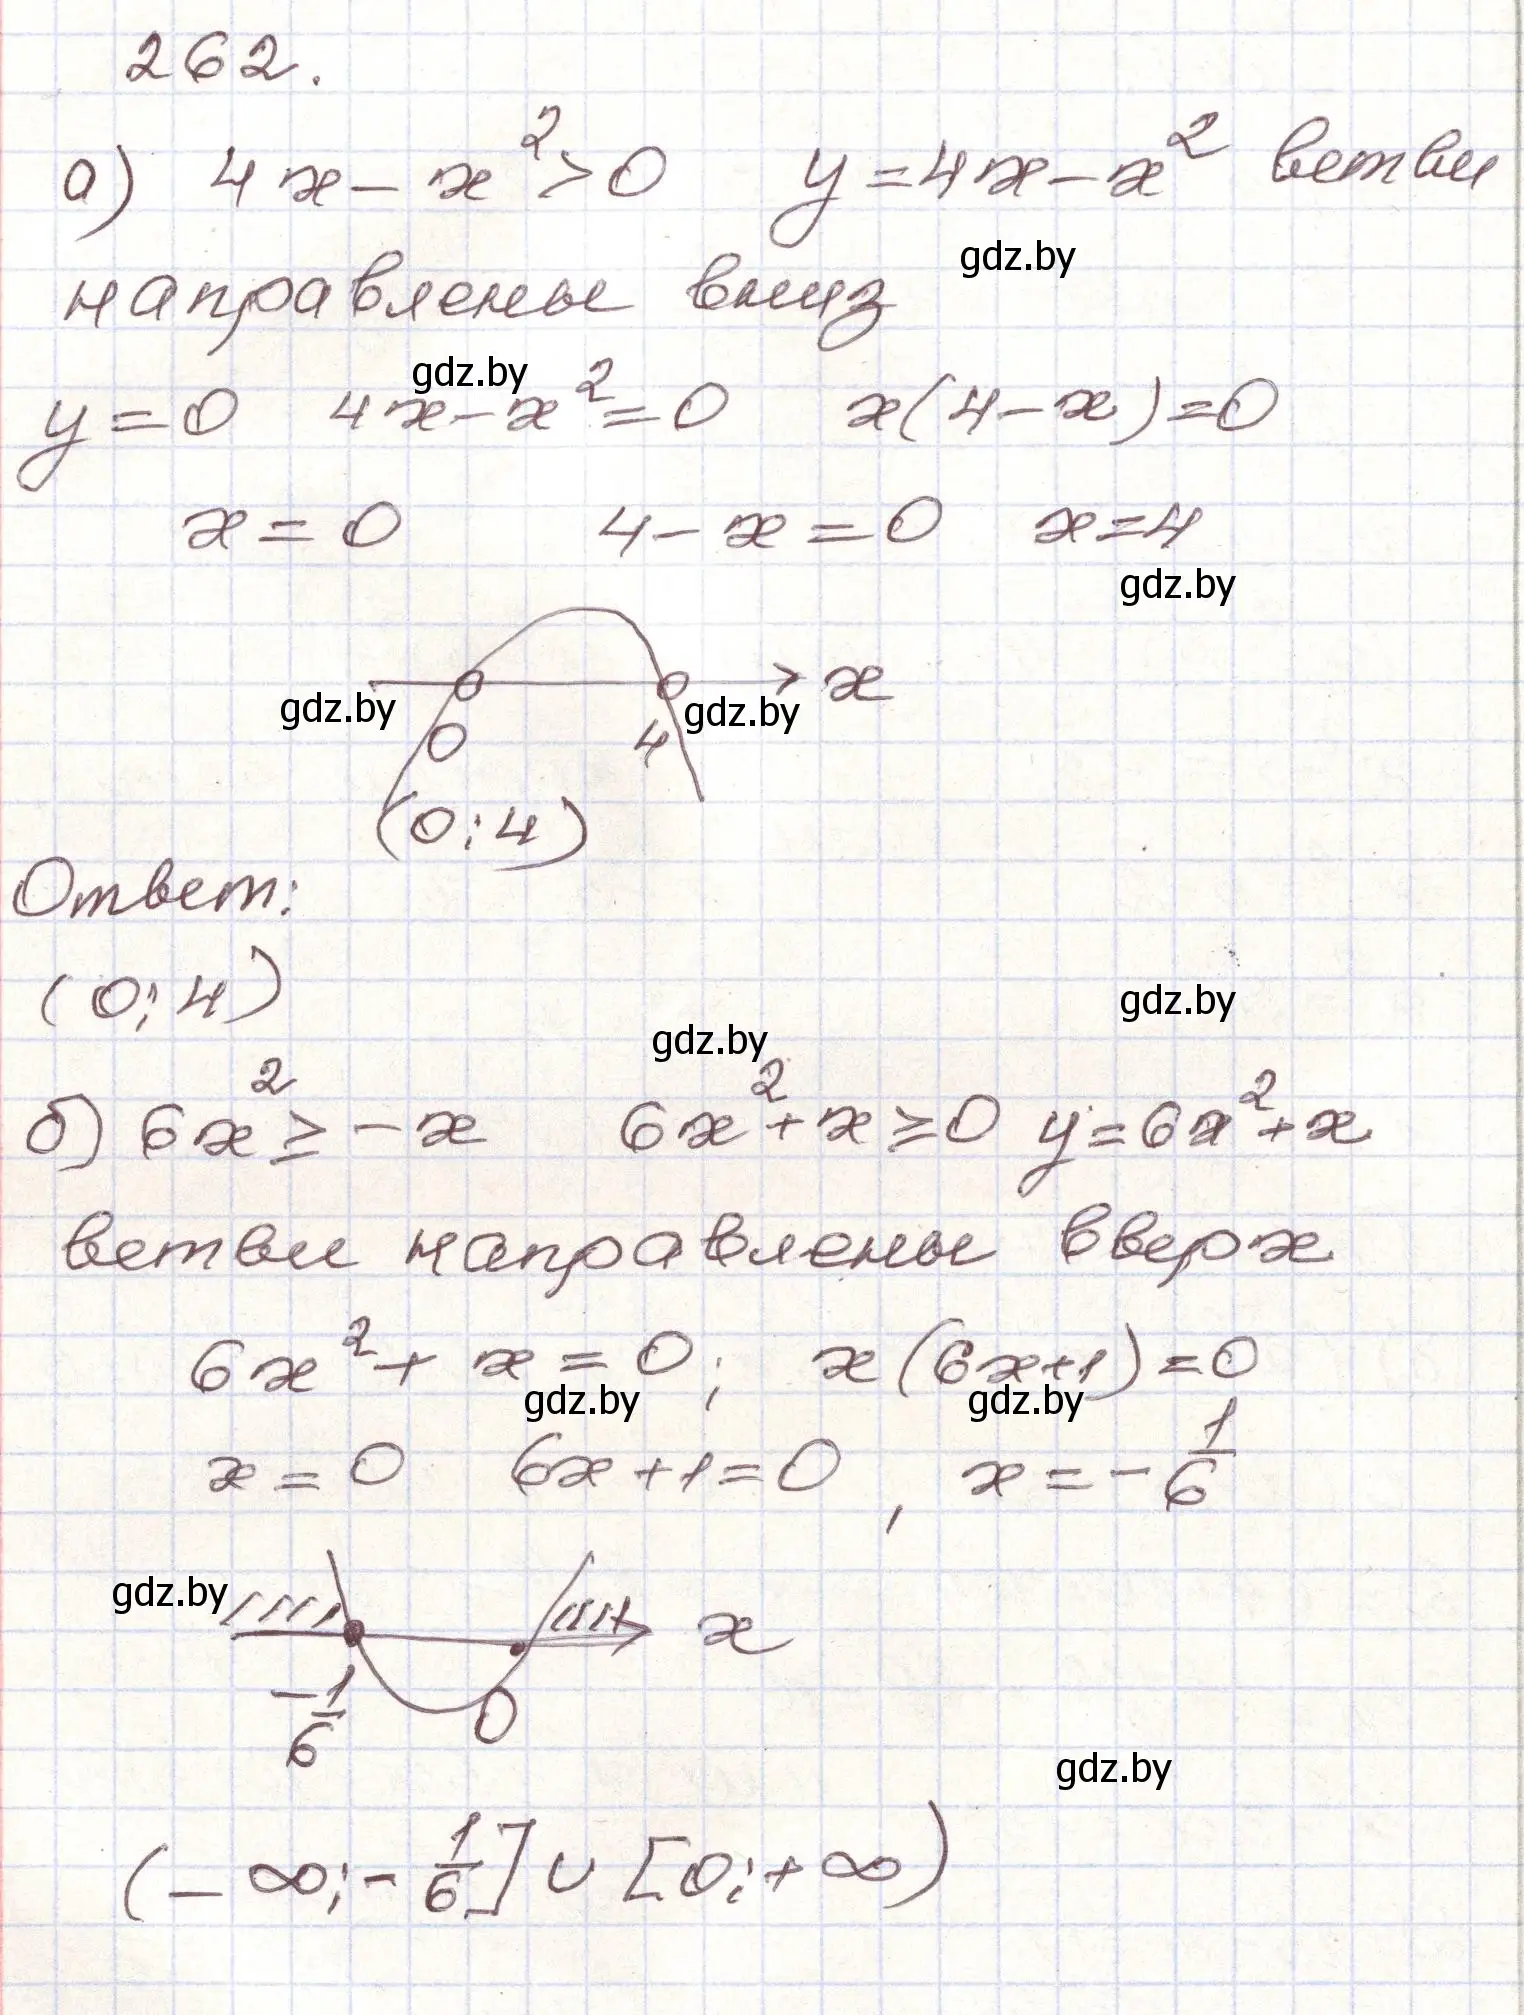 262.
а) 4x - x² > 0   y = 4x - x² ветви
gdz.by
направлены вниз
gdz.by
y = 0   4x - x² = 0   x(4 - x) = 0
x = 0   4 - x = 0   x = 4
gdz.by
x
gdz.by   gdz.by
0   4
(0; 4)
Ответ:
(0; 4)
gdz.by
gdz.by
б) 6x² ≥ -x   6x² + x ≥ 0   y = 6x² + x
ветви направлены вверх
6x² + x = 0;   x(6x+1) = 0
gdz.by   gdz.by
x = 0   6x + 1 = 0,   x = -1/6
gdz.by
x
-1/6   0
gdz.by
(-∞; -1/6] ∪ [0; +∞)